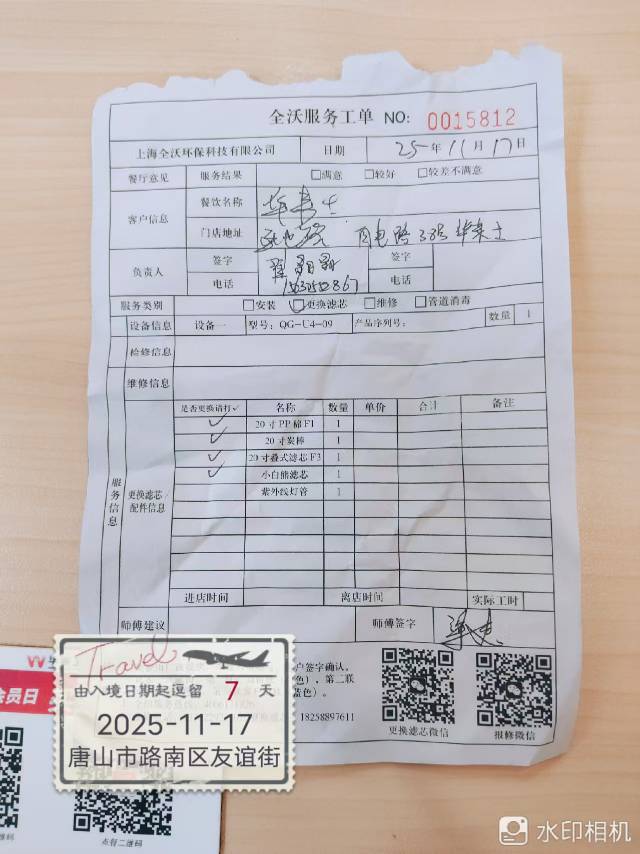 全沃服务工单 NO: 0015812
上海全沃环保科技有限公司 日期 25年11月17日
餐厅意见 服务结果 □满意 □较好 □较差不满意
客户信息 餐饮名称 华莱士
门店地址 38号华莱士
负责人 签字 签字
电话 电话
服务类别 □安装 □更换滤芯 □维修 □管道消毒
设备信息 设备一 型号: QG-U4-09 产品序列号: 数量 1
检修信息
维修信息
服务信息
更换滤芯/配件信息
是否更换请打✓ 名称 数量 单价 合计 备注
✓ 20寸PP棉F1 1
✓ 20寸炭棒 1
✓ 20寸叠式滤芯F3 1
✓ 小白熊滤芯 1
紫外线灯管 1
进店时间 离店时间 实际工时
师傅建议 师傅签字
户签字确认,
色), 第二联
蓝色)。
18258897611
更换滤芯微信 报修微信
Travel
由入境日期起逗留 7 天
2025-11-17
唐山市路南区友谊街
会员日
点餐二维码
水印相机